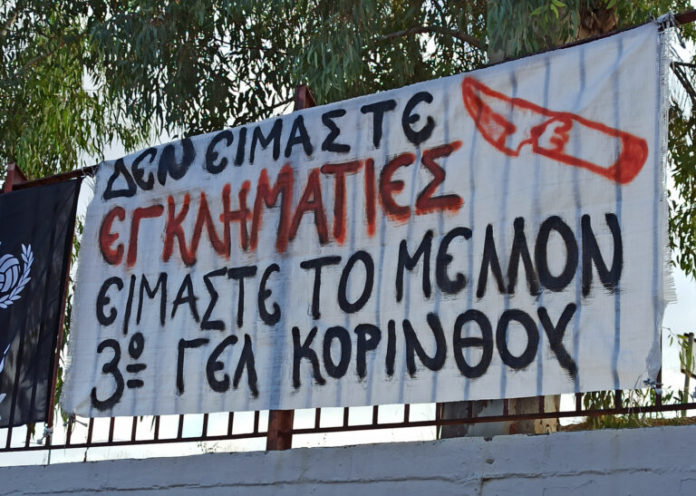 ΔΕΝ ΕΙΜΑΣΤΕ
ΕΓΚΛΗΜΑΤΙΕΣ
ΕΙΜΑΣΤΕ ΤΟ ΜΕΛΛΟΝ
3º ΓΕΛ ΚΟΡΙΝΘΟΥ